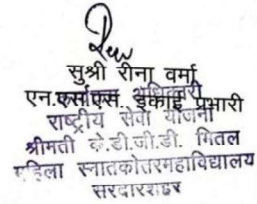 सुश्री रीना वर्मा
एन.एस.एस. इकाई प्रभारी
राष्ट्रीय सेवा योजना
श्रीमती के.डी.जी.डी. मितल
महिला स्नातकोतरमहाविद्यालय
सरदारशहर